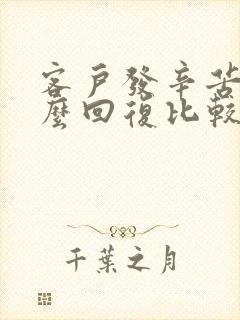 客戶發辛苦
麼回復比較
千葉之月